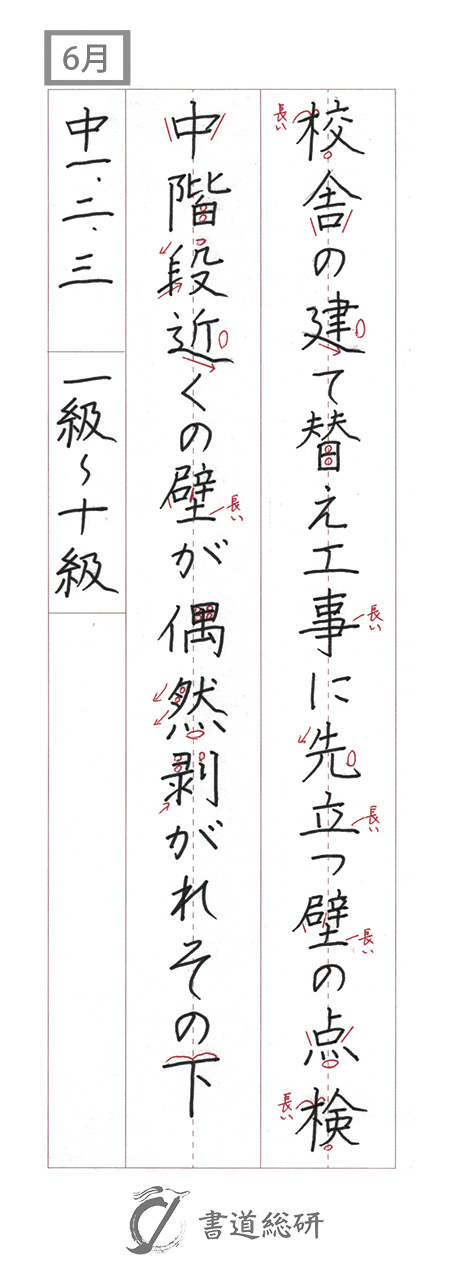 6月
校舎の建て替え工事に先立つ壁の点検
中階段近くの壁が偶然剥がれその下
中一、二、三 一級〜十級
長い
長い
長い
長い
長い
長い
書道総研